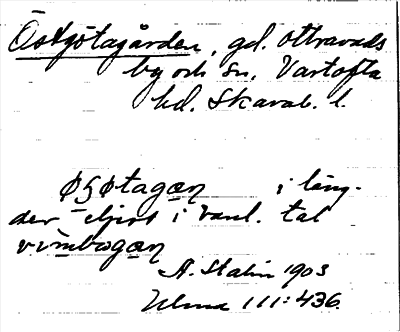 Östgötagården, gd. Ottravads
by och sn, Vartofta
hd. Skarab. l.
øʒøtagan i läng-
der eljest i vanl. tal
vimbogan
A. Stalin 1903
Ulma 111:436.